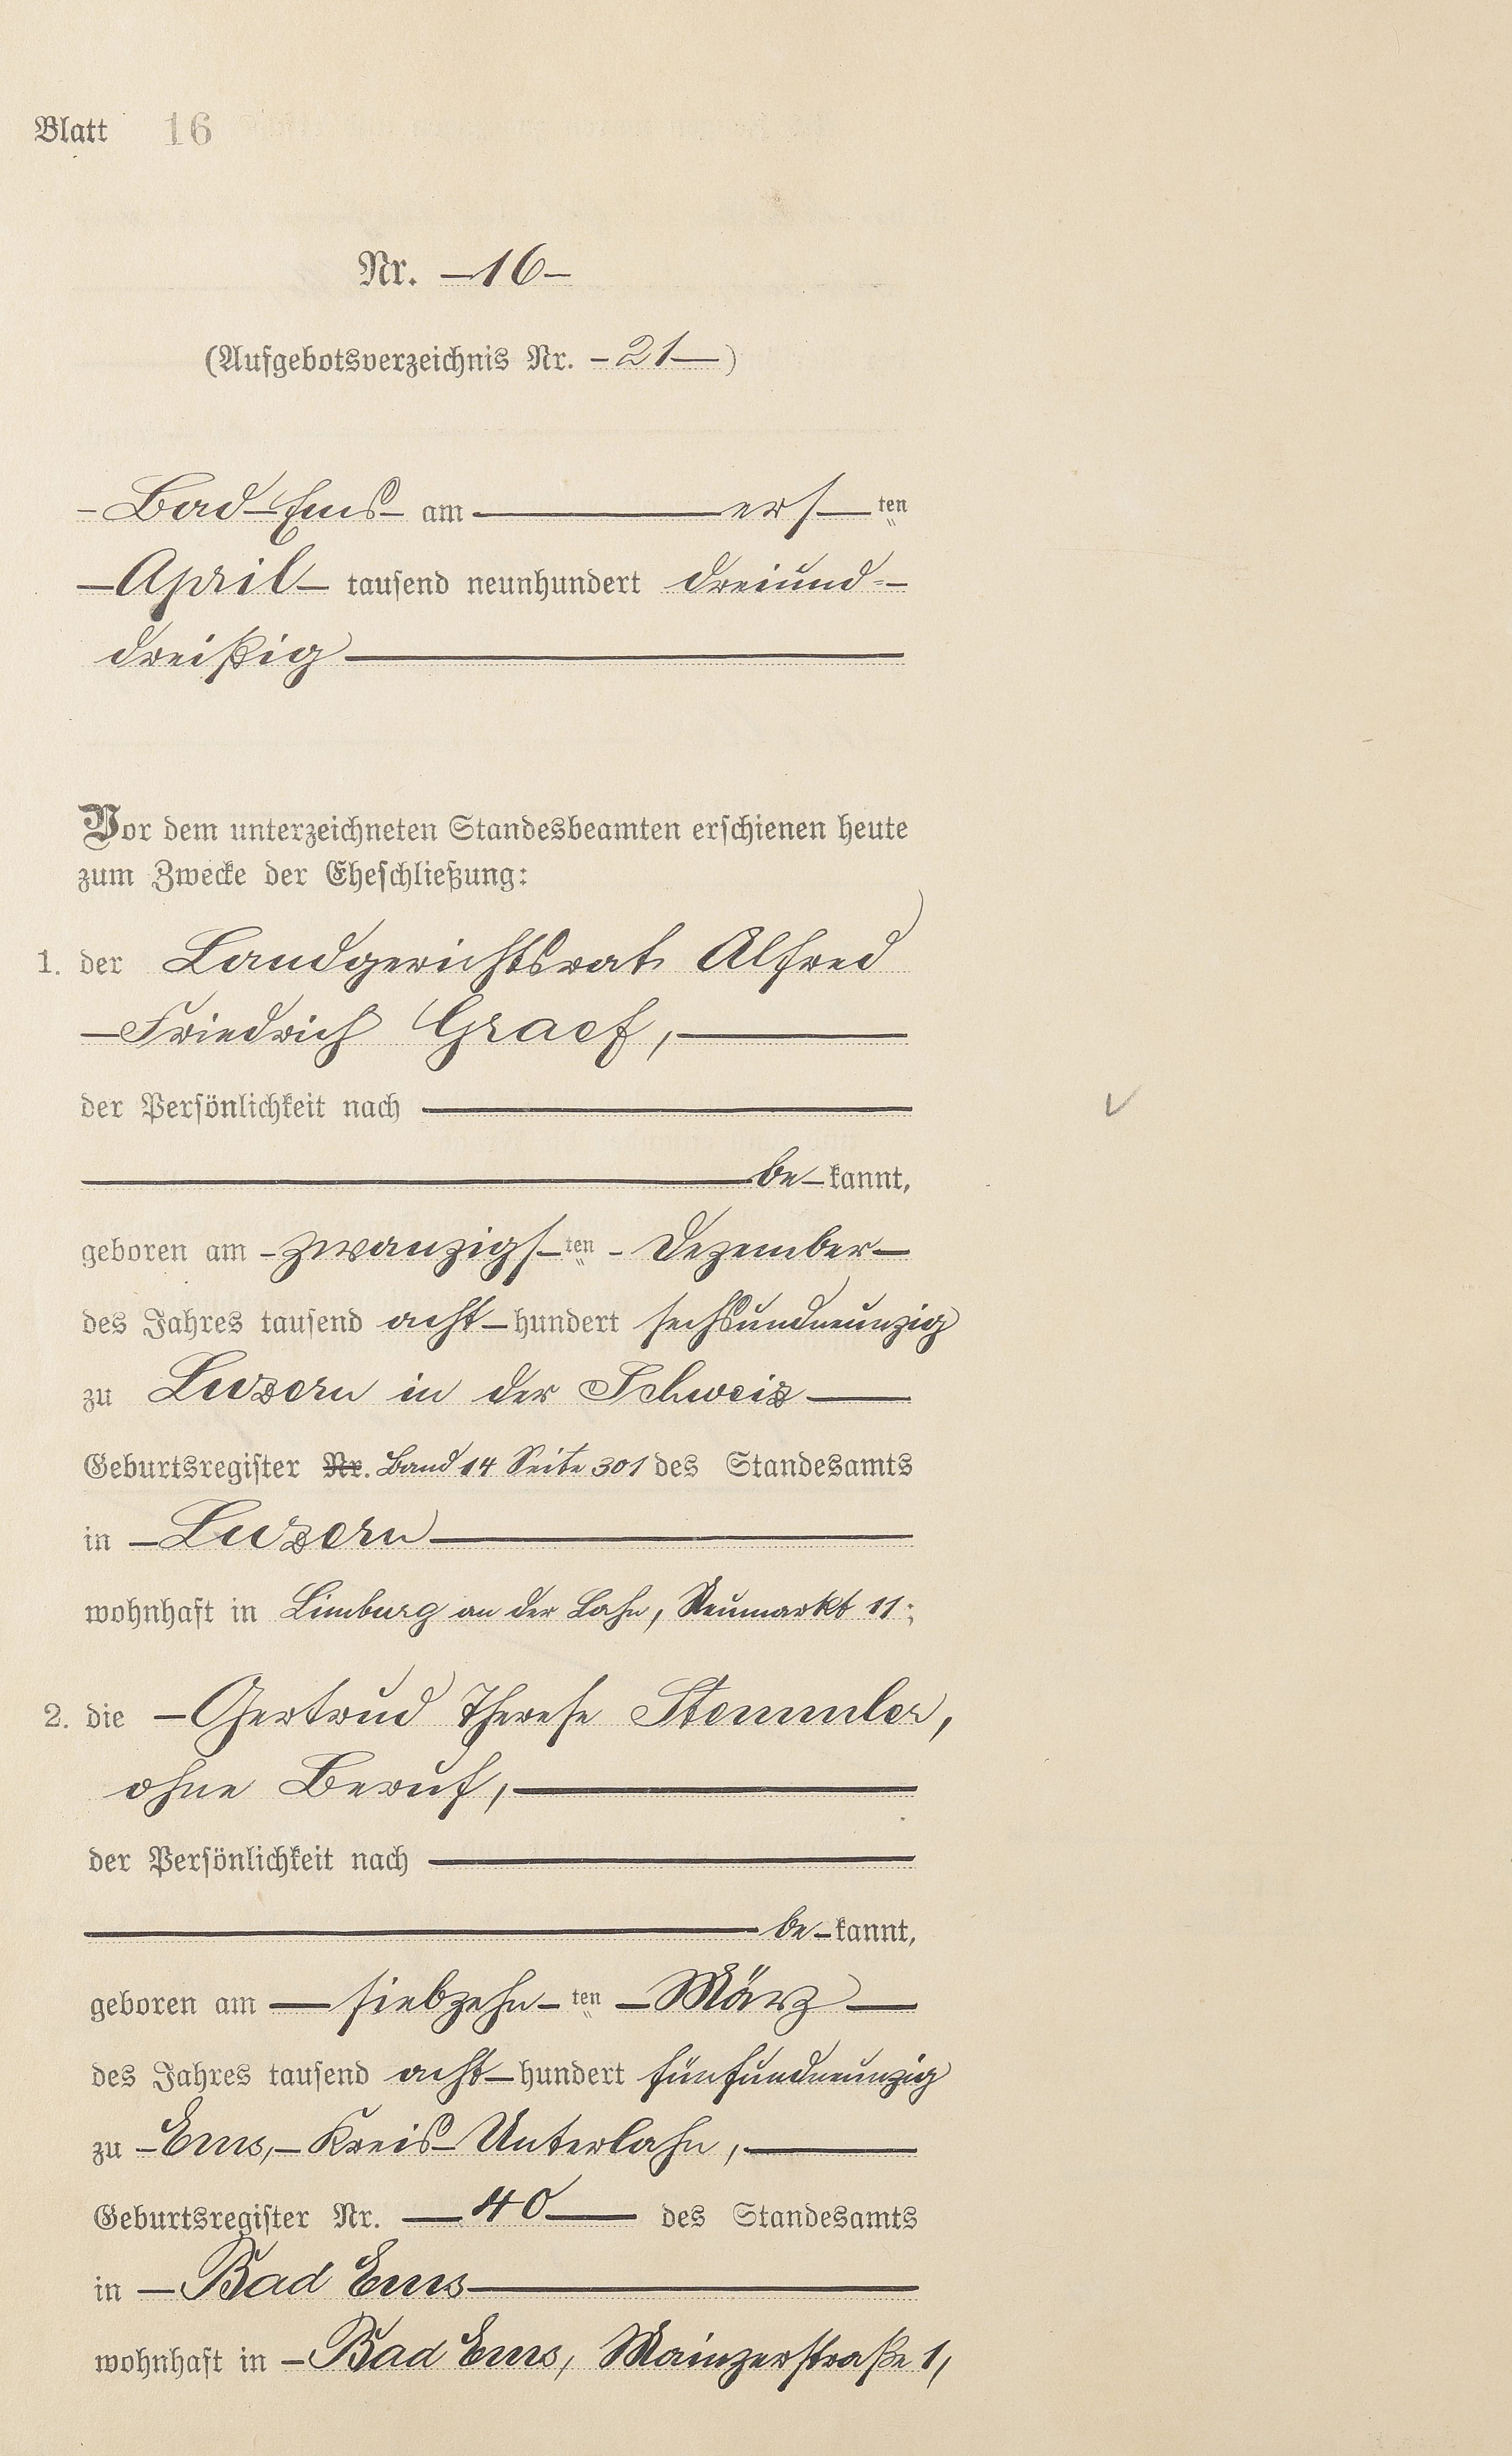 Blatt 16
Nr. —16—
(Aufgebotsverzeichnis Nr. —21—)
—Bad Ems— am — ers—ten
—April— tausend neunhundert dreiund=—
dreißig —
Vor dem unterzeichneten Standesbeamten erschienen heute
zum Zwecke der Eheschließung:
1. der Landgerichtsrat Alfred
—Friedrich Graef, —
der Persönlichkeit nach —
— be—kannt,
geboren am —zwanzigs—ten — Dezember—
des Jahres tausend acht—hundert sechsundneunzig
zu Luzern in der Schweiz —
Geburtsregister Nr. Band 14 Seite 301 des Standesamts
in —Luzern —
wohnhaft in Limburg an der Lahn, Neumarkt 11;
2. die —Gertrud Therese Stemmler,
ohne Beruf, —
der Persönlichkeit nach —
— be—kannt,
geboren am — siebzehn—ten —März —
des Jahres tausend acht—hundert fünfundneunzig
zu —Ems,— Kreis Unterlahn, —
Geburtsregister Nr. — 40 — des Standesamts
in —Bad Ems —
wohnhaft in —Bad Ems, Mainzerstraße 1,